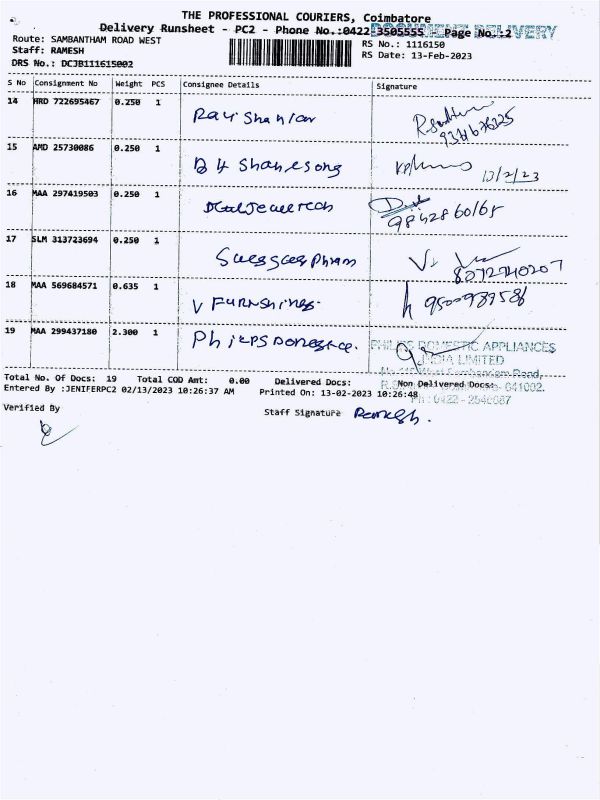 THE PROFESSIONAL COURIERS, Coimbatore
DOCUMENT DELIVERY
Delivery Runsheet - PC2 - Phone No.:0422-3505555 Page No.:2
Route: SAMBANTHAM ROAD WEST
RS No.: 1116150
Staff: RAMESH
RS Date: 13-Feb-2023
DRS No.: DCJB111615002
S No Consignment No Weight PCS Consignee Details Signature
14 HRD 722695467 0.250 1 Ravi Shankar
15 AMD 25730086 0.250 1 13/2/23
16 MAA 297419503 0.250 1 98428 60168
17 SLM 313723694 0.250 1 8072740207
18 MAA 569684571 0.635 1 V FURNSHINGS. 9500989586
19 MAA 299437180 2.300 1
PHILIPS DOMESTIC APPLIANCES
INDIA LIMITED
Total No. Of Docs: 19 Total COD Amt: 0.00 Delivered Docs: Non Delivered Docs:
Entered By :JENIFERPC2 02/13/2023 10:26:37 AM Printed On: 13-02-2023 10:26:48
Verified By
Staff Signature Ramesh.